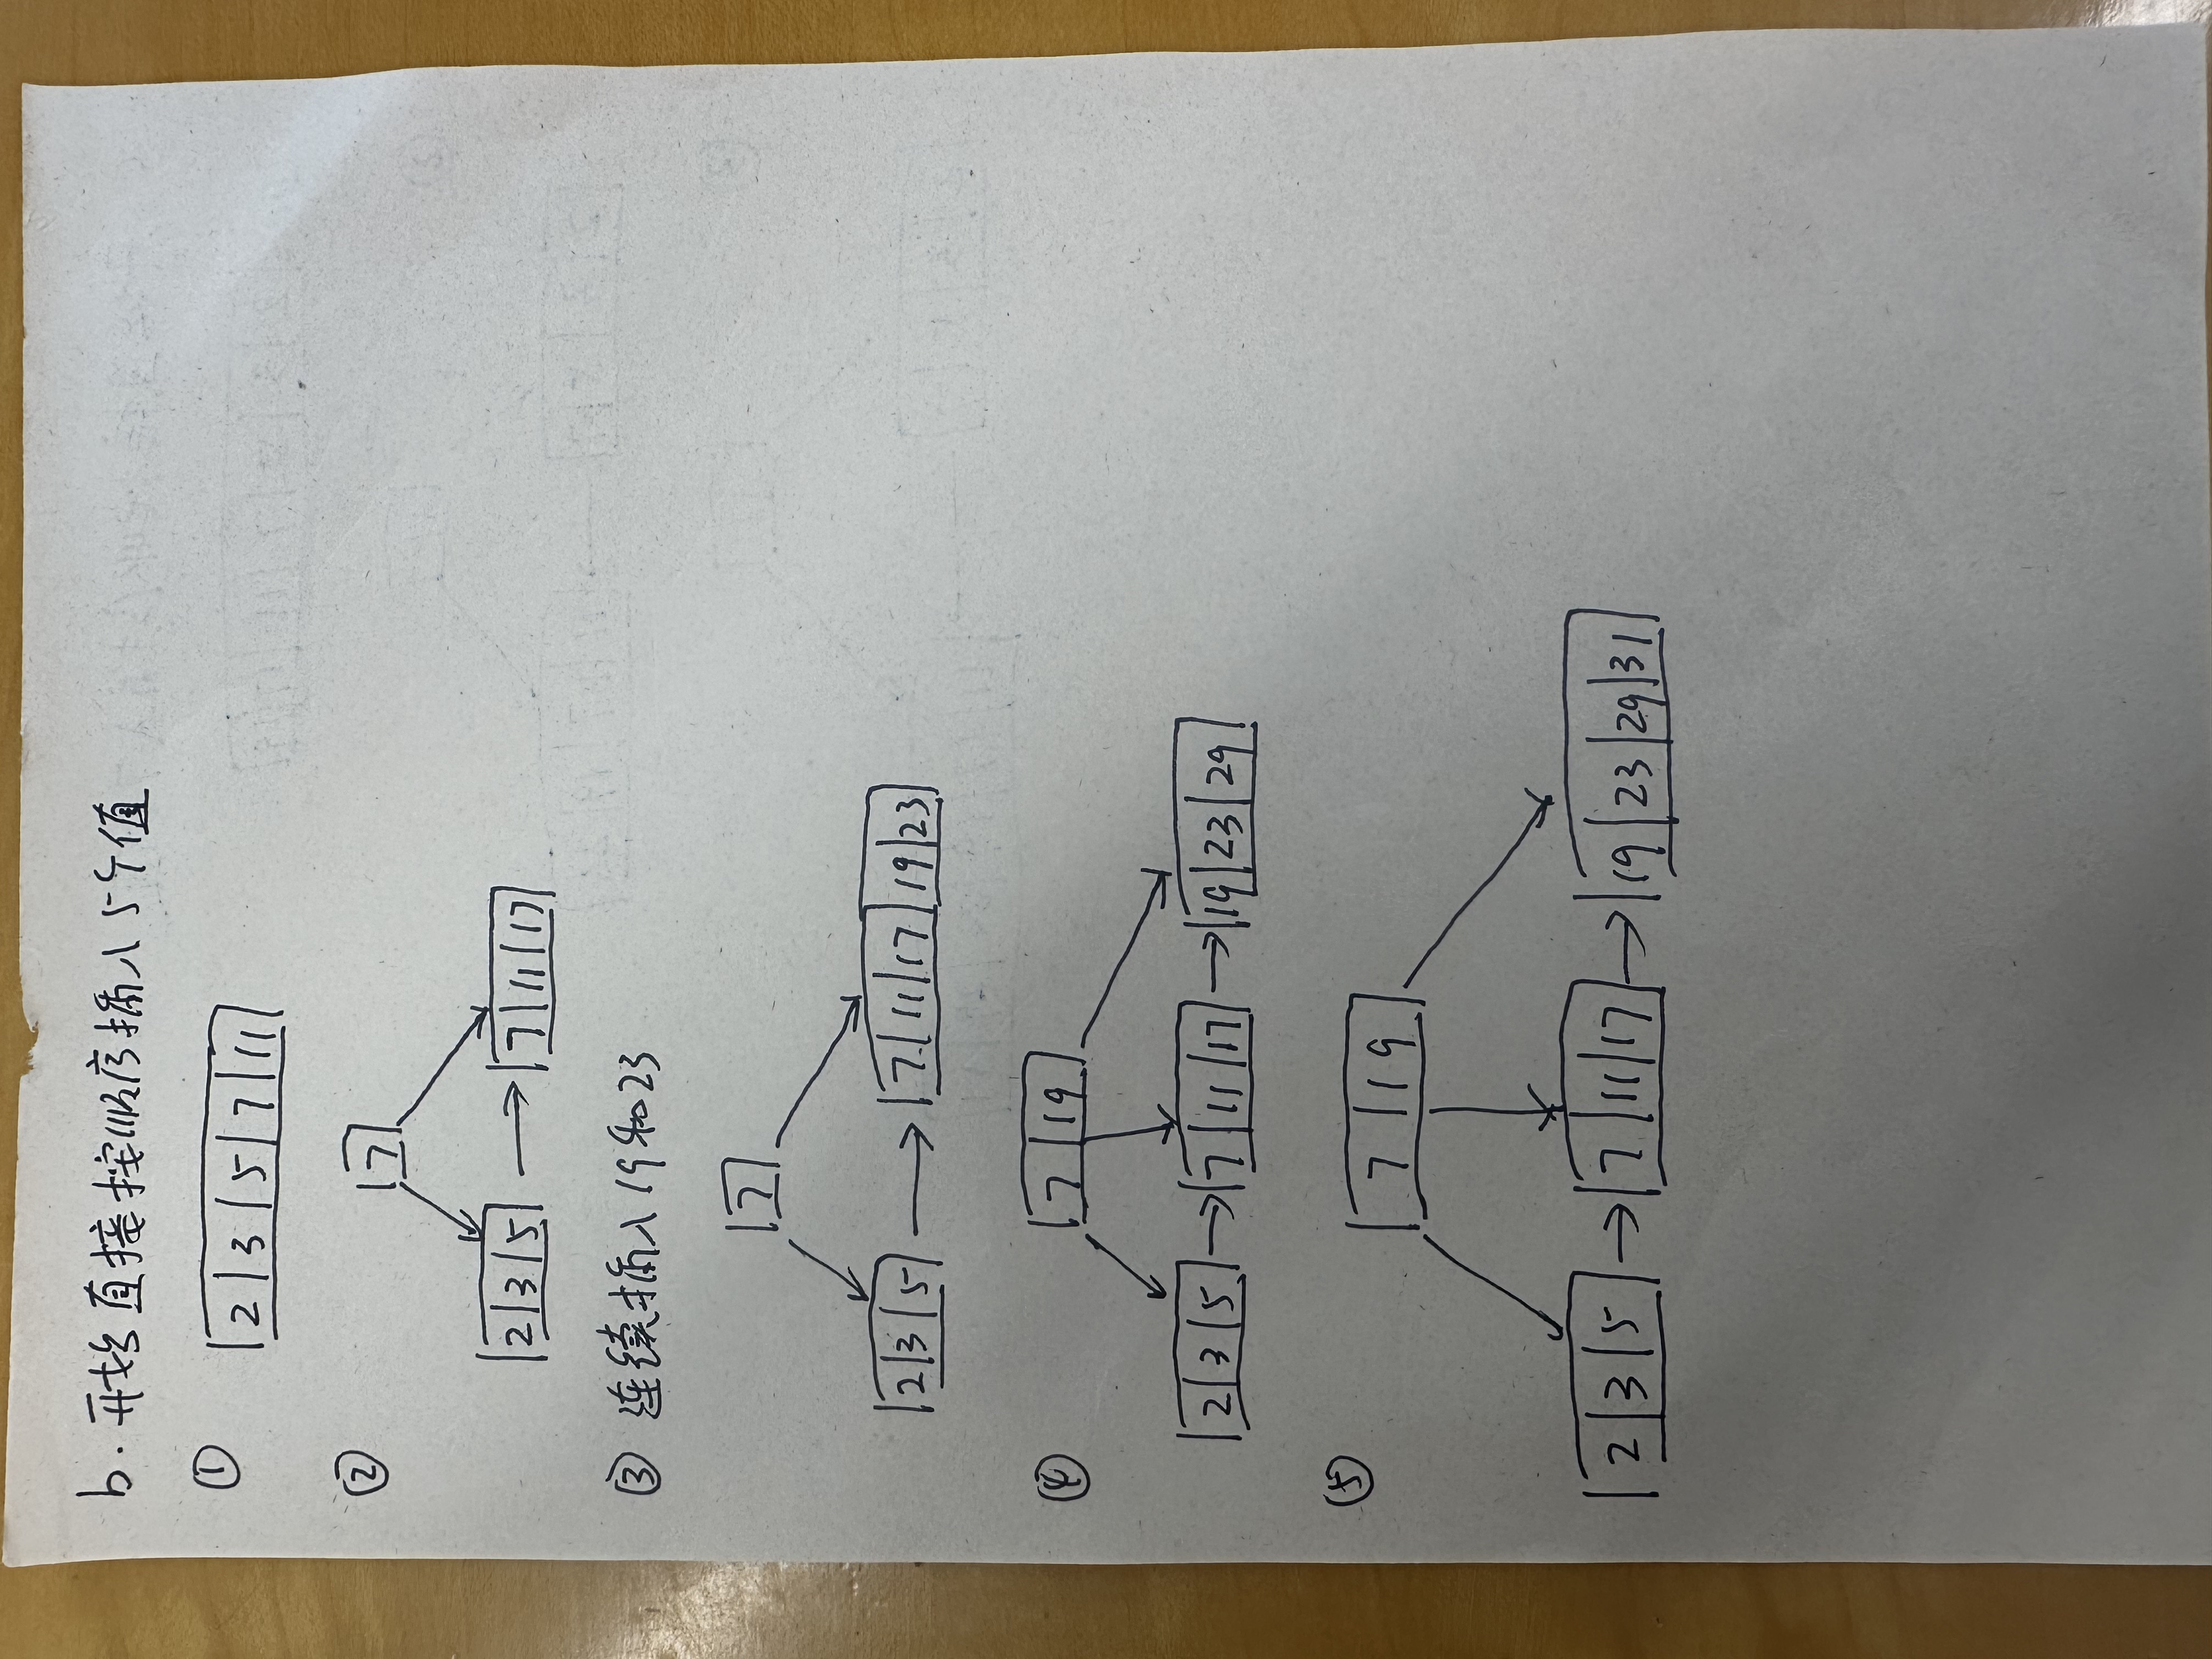 b. 开始直接按顺序插入5个值
① 2 3 5 7 11
② 7
2 3 5 → 7 11 17
③ 连续插入19和23
7
2 3 5 → 7 11 17 19 23
④ 7 19
2 3 5 → 7 11 17 → 19 23 29
⑤ 7 19
2 3 5 → 7 11 17 → 19 23 29 31